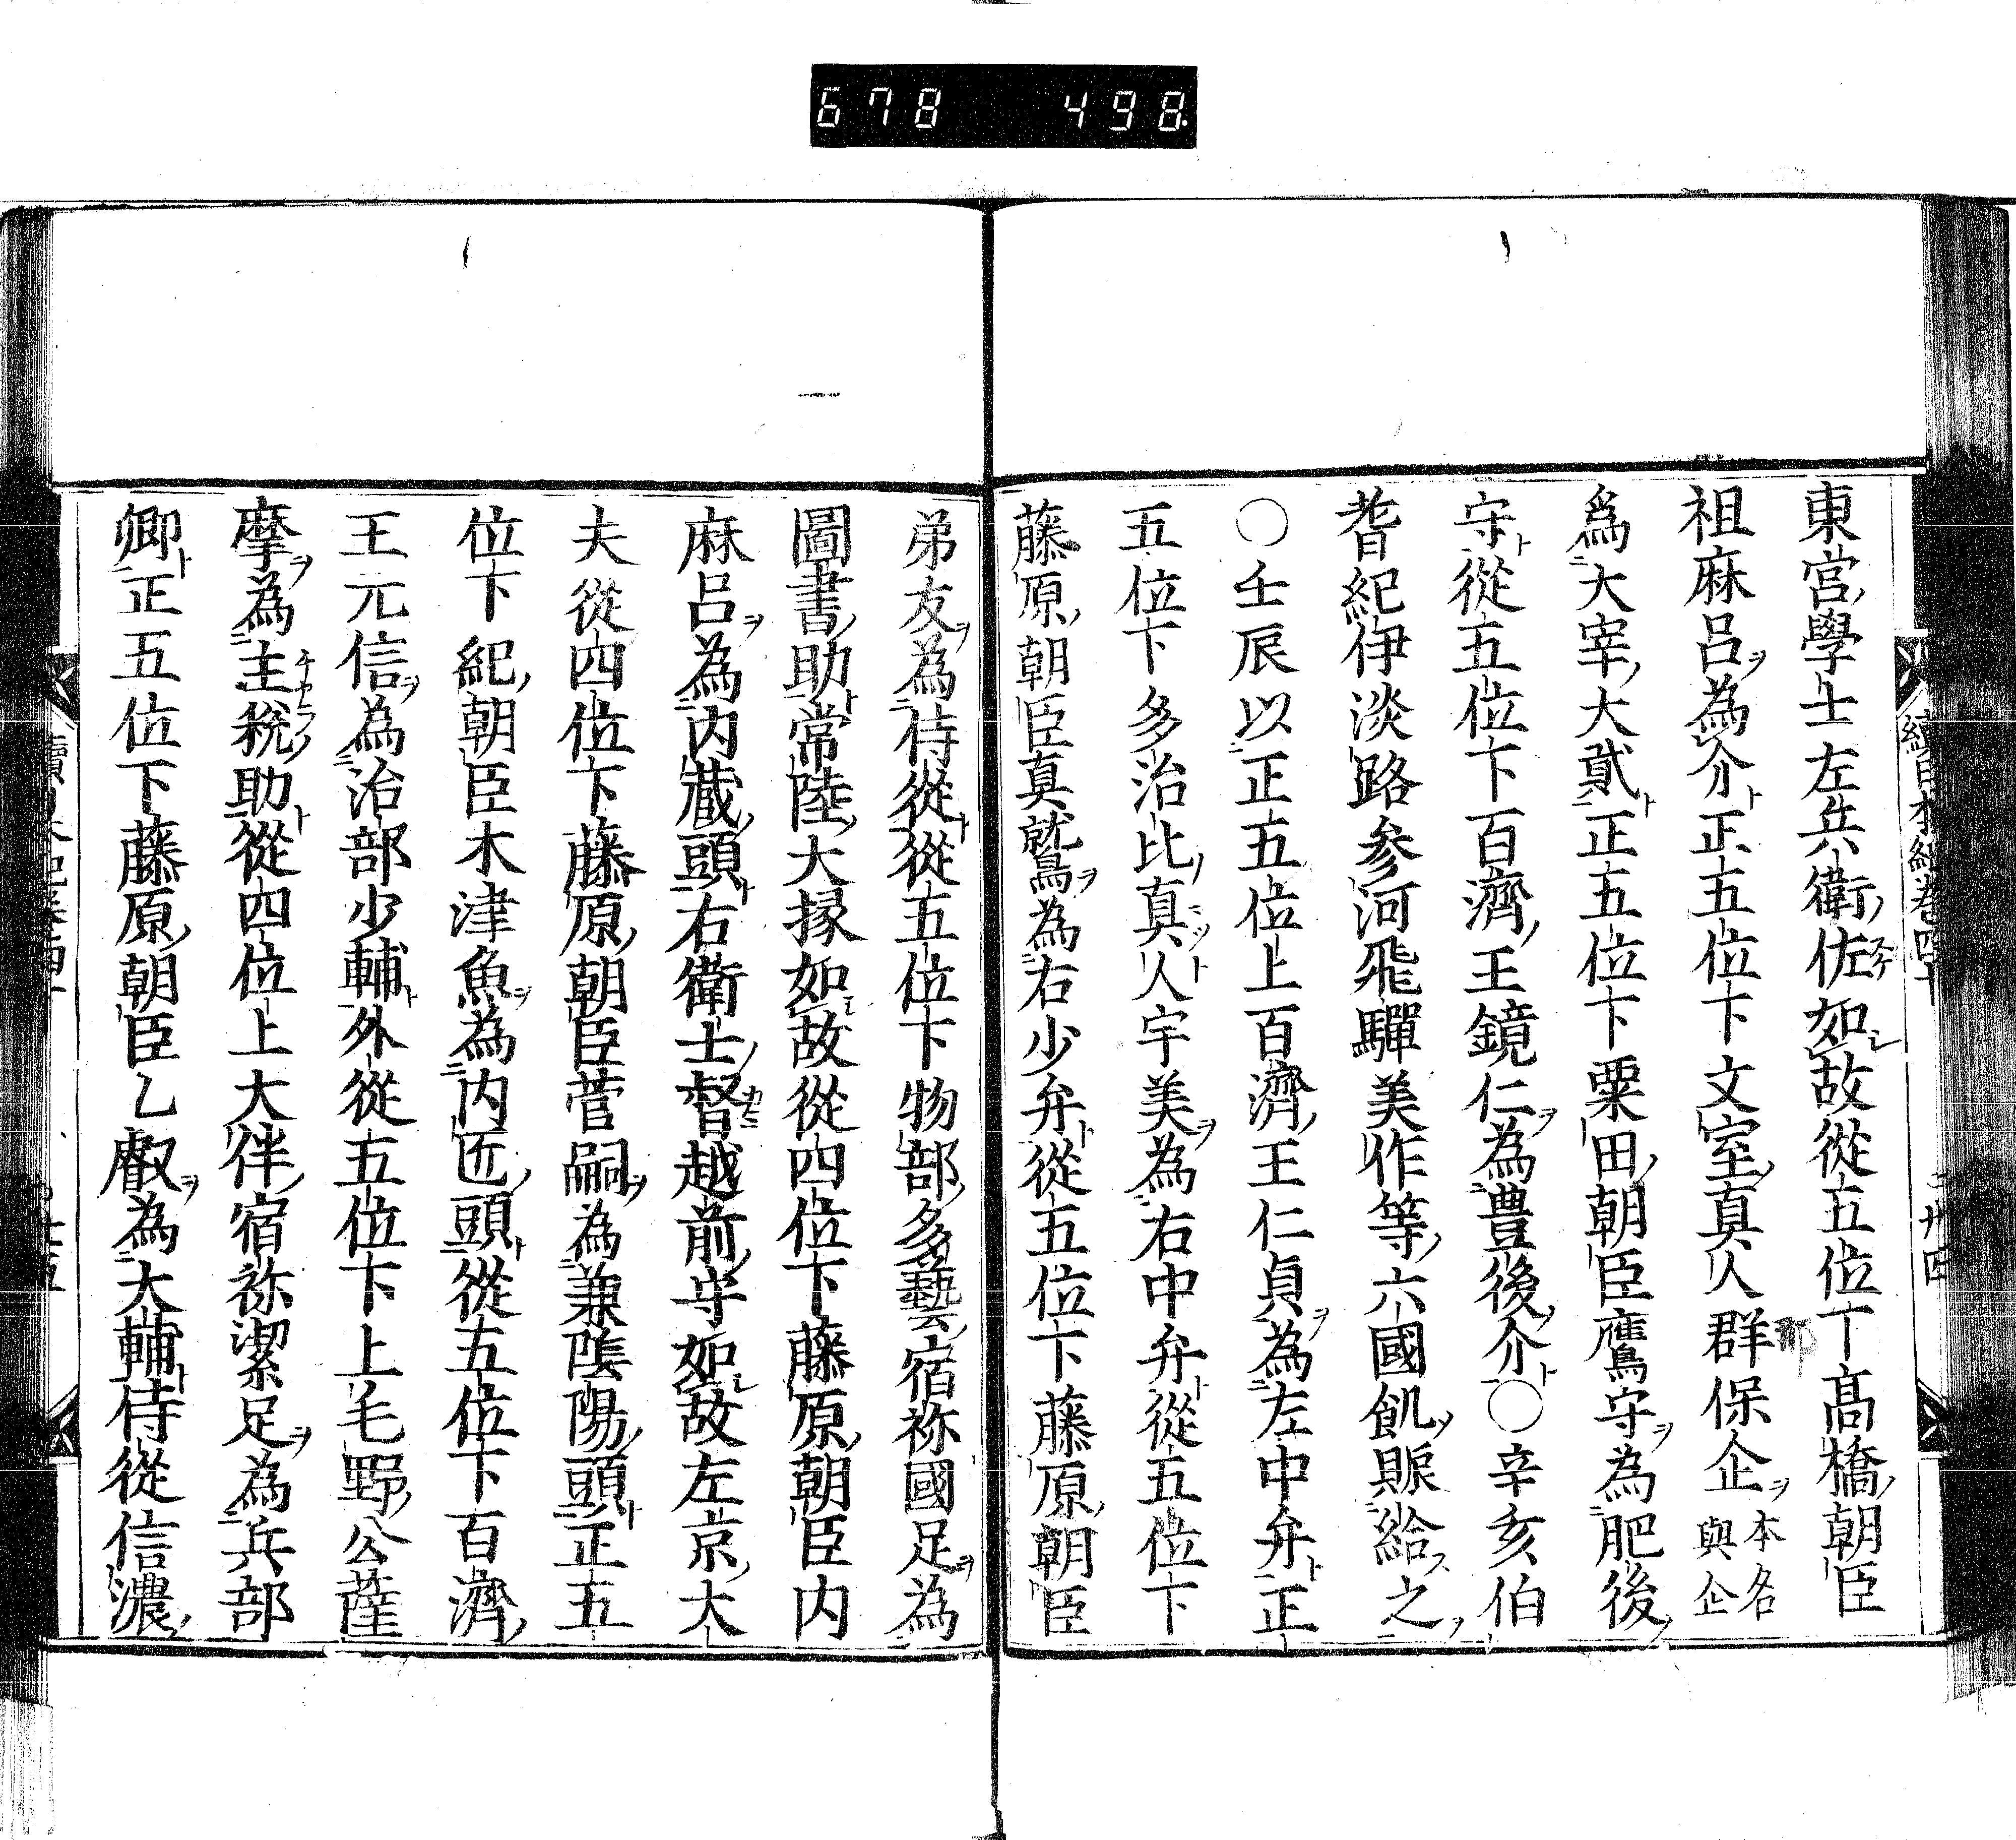 678 498
東宮學士左兵衛佐如故從五位下髙橋朝臣
祖麻呂為介正五位下文室真人群保企本名與企
為大宰大貳正五位下粟田朝臣鷹守為肥後
守從五位下百濟王鏡仁為豊後介○辛亥伯
耆紀伊淡路参河飛驒美作等六國飢賑給之
○壬辰以正五位上百濟王仁貞為左中弁正
五位下多治比真人宇美為右中弁從五位下
藤原朝臣真鷲為右少弁從五位下藤原朝臣
弟友為侍從從五位下物部多藝宿祢國足為
圖書助常陸大掾如故從四位下藤原朝臣内
麻呂為内蔵頭右衛士督越前守如故左京大
夫從四位下藤原朝臣菅嗣為兼陰陽頭正五
位下紀朝臣木津魚為内匠頭從五位下百濟
王元信為治部少輔外從五位下上毛野公薩
摩為主税助從四位上大伴宿祢潔足為兵部
卿正五位下藤原朝臣乙叡為大輔侍從信濃